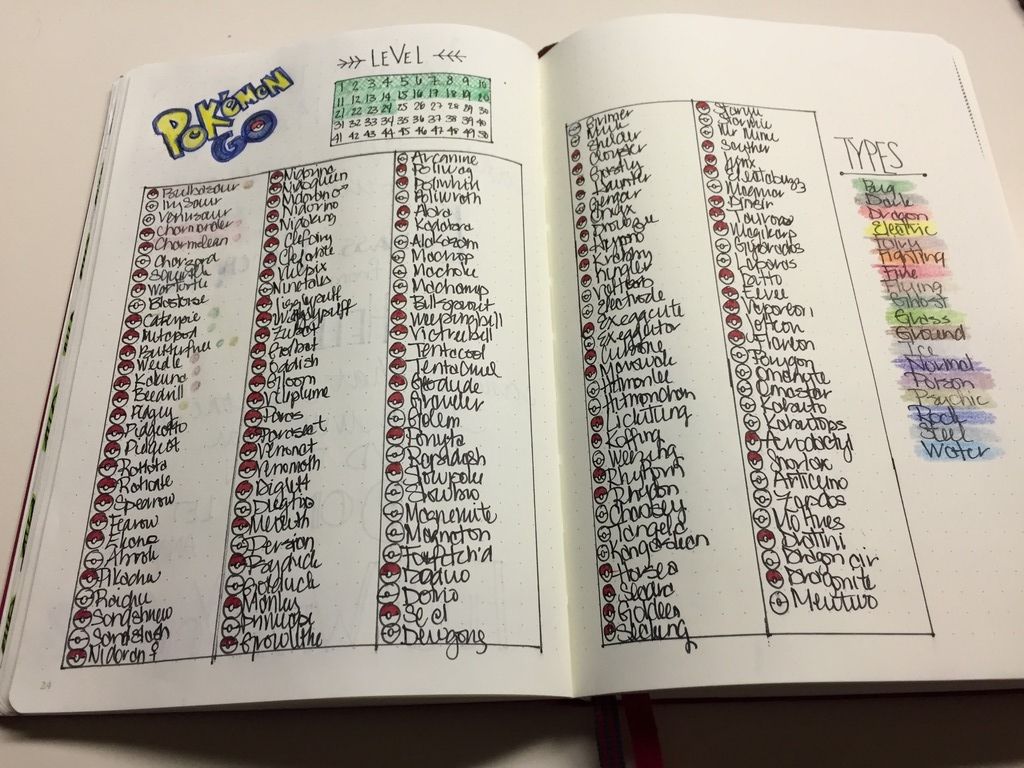 POKéMON
GO
LEVEL
1 2 3 4 5 6 7 8 9 10
11 12 13 14 15 16 17 18 19 20
21 22 23 24 25 26 27 28 29 30
31 32 33 34 35 36 37 38 39 40
41 42 43 44 45 46 47 48 49 50
Bulbasaur
Ivysaur
Venusaur
Charmander
Charmelean
Charzard
Squirtle
Wartortle
Blastoise
Caterpie
Metapod
Butterfree
Weedle
Kakuna
Beedrill
Pidgey
Pidgeotto
Pidgeot
Rattata
Raticate
Spearow
Fearow
Ekans
Arbok
Pikachu
Raichu
Sandshrew
Sandslash
Nidoran♀
Nidorina
Nidoqueen
Nidoran♂
Nidorino
Nidoking
Clefairy
Clefable
Vulpix
Ninetales
Jigglypuff
Wigglytuff
Zubat
Golbat
Oddish
Gloom
Vileplume
Paras
Parasect
Venonat
Venomoth
Diglett
Dugtrio
Meowth
Persion
Psyduck
Golduck
Mankey
Primeape
Growlithe
Arcanine
Poliwag
Poliwhirl
Poliwrath
Abra
Kadabra
Alakazam
Machop
Machoke
Machamp
Bellsprout
Weepinbell
Victreebell
Tentacool
Tentacruel
Geodude
Graveler
Golem
Ponyta
Rapidash
Slowpoke
Slowbro
Magnemite
Magneton
Farfetch'd
Doduo
Dodrio
Seel
Dewgong
24
Grimer
Muk
Shellder
Cloyster
Gastly
Haunter
Gengar
Onyx
Drowzee
Hypno
Krabby
Kingler
Voltorb
Electrode
Exeggcute
Exeggutor
Cubone
Marowak
Hitmonlee
Hitmonchan
Lickitung
Koffing
Weezing
Rhyhorn
Rhydon
Chansey
Tangela
Kangaskhan
Horsea
Seadra
Goldeen
Seaking
Staryu
Starmie
Mr Mime
Scyther
Jynx
Electabuzz
Magmar
Pinsir
Tauros
Magikarp
Gyarados
Lapras
Ditto
Eevee
Vaporeon
Jolteon
Flareon
Porygon
Omanyte
Omastar
Kabuto
Kabutops
Aerodactyl
Snorlax
Articuno
Zapdos
Moltres
Dratini
Dragonair
Dragonite
Mewtwo
TYPES
Bug
Dark
Dragon
Electric
Fairy
Fighting
Fire
Flying
Ghost
Grass
Ground
Ice
Normal
Poison
Psychic
Rock
Steel
Water